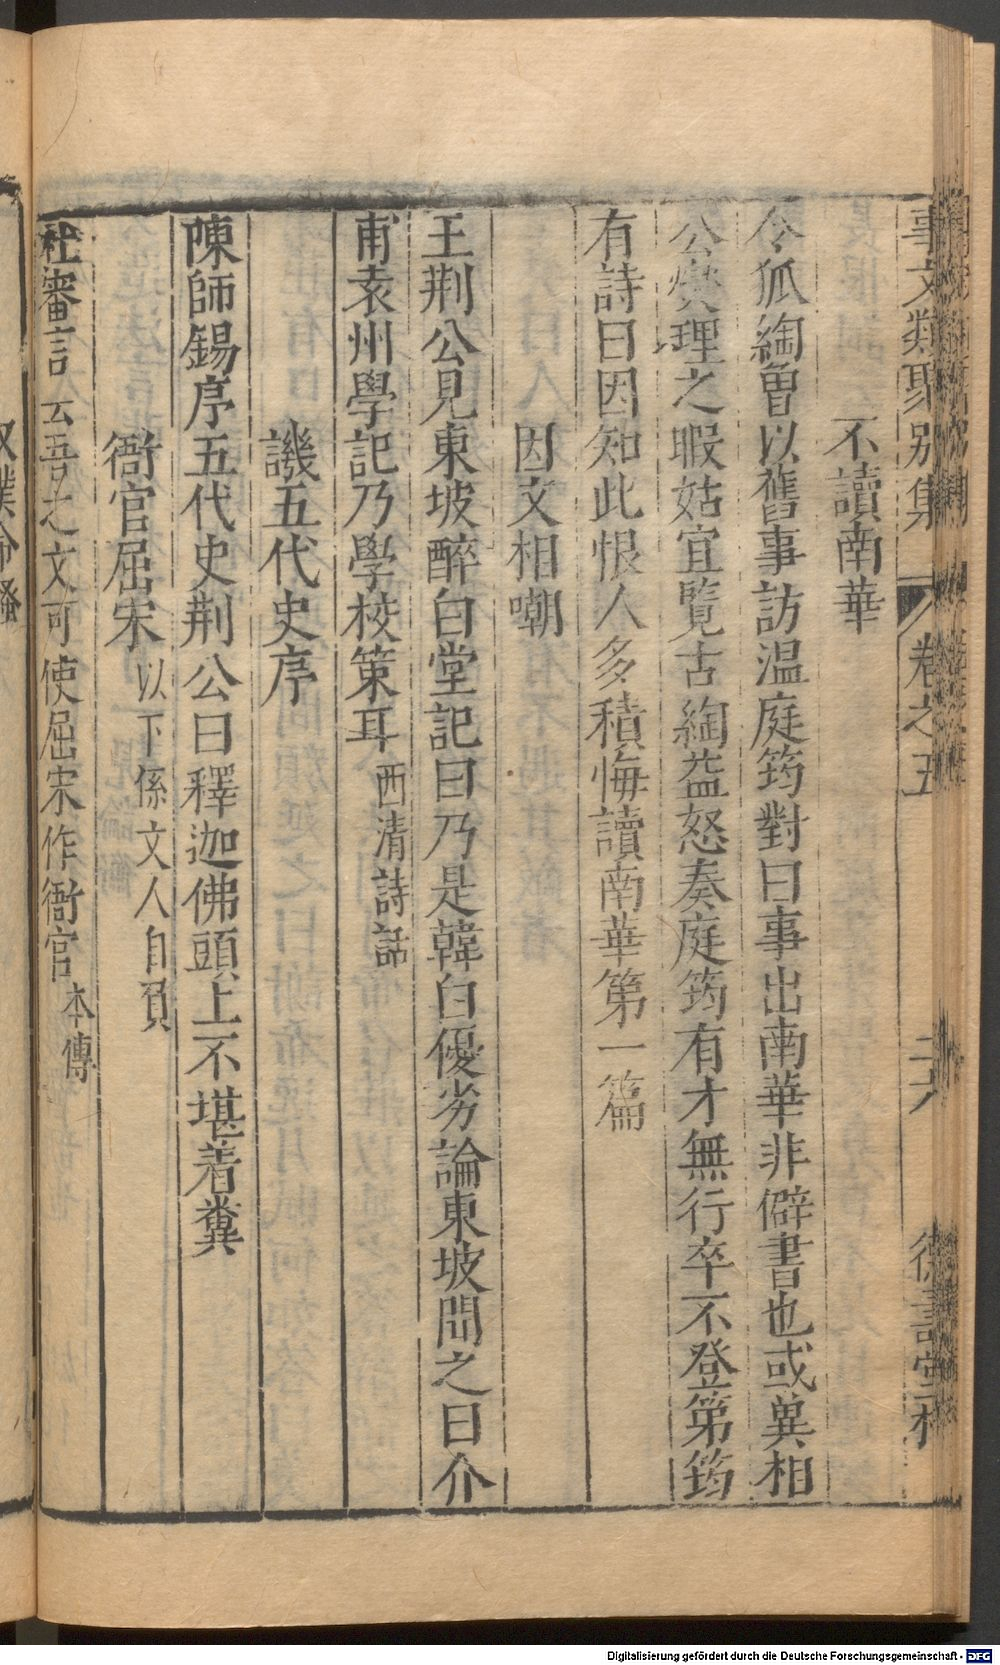 事文類聚别集
卷之五
二六
德壽堂梓
不讀南華
令狐綯曾以舊事訪温庭筠對曰事出南華非僻書也或兾相
公爕理之暇姑宜覽古綯益怒奏庭筠有才無行卒不登第筠
有詩曰因知此恨人多積悔讀南華第一篇
因文相嘲
王荆公見東坡醉白堂記曰乃是韓白優劣論東坡聞之曰介
甫袁州學記乃學校策耳 西清詩話
譏五代史序
陳師錫序五代史荆公曰釋迦佛頭上不堪着糞
衙官屈宋 以下係文人自負
杜審言云吾之文可使屈宋作衙官 本傳
奴僕命騷
Digitalisierung gefördert durch die Deutsche Forschungsgemeinschaft - DFG